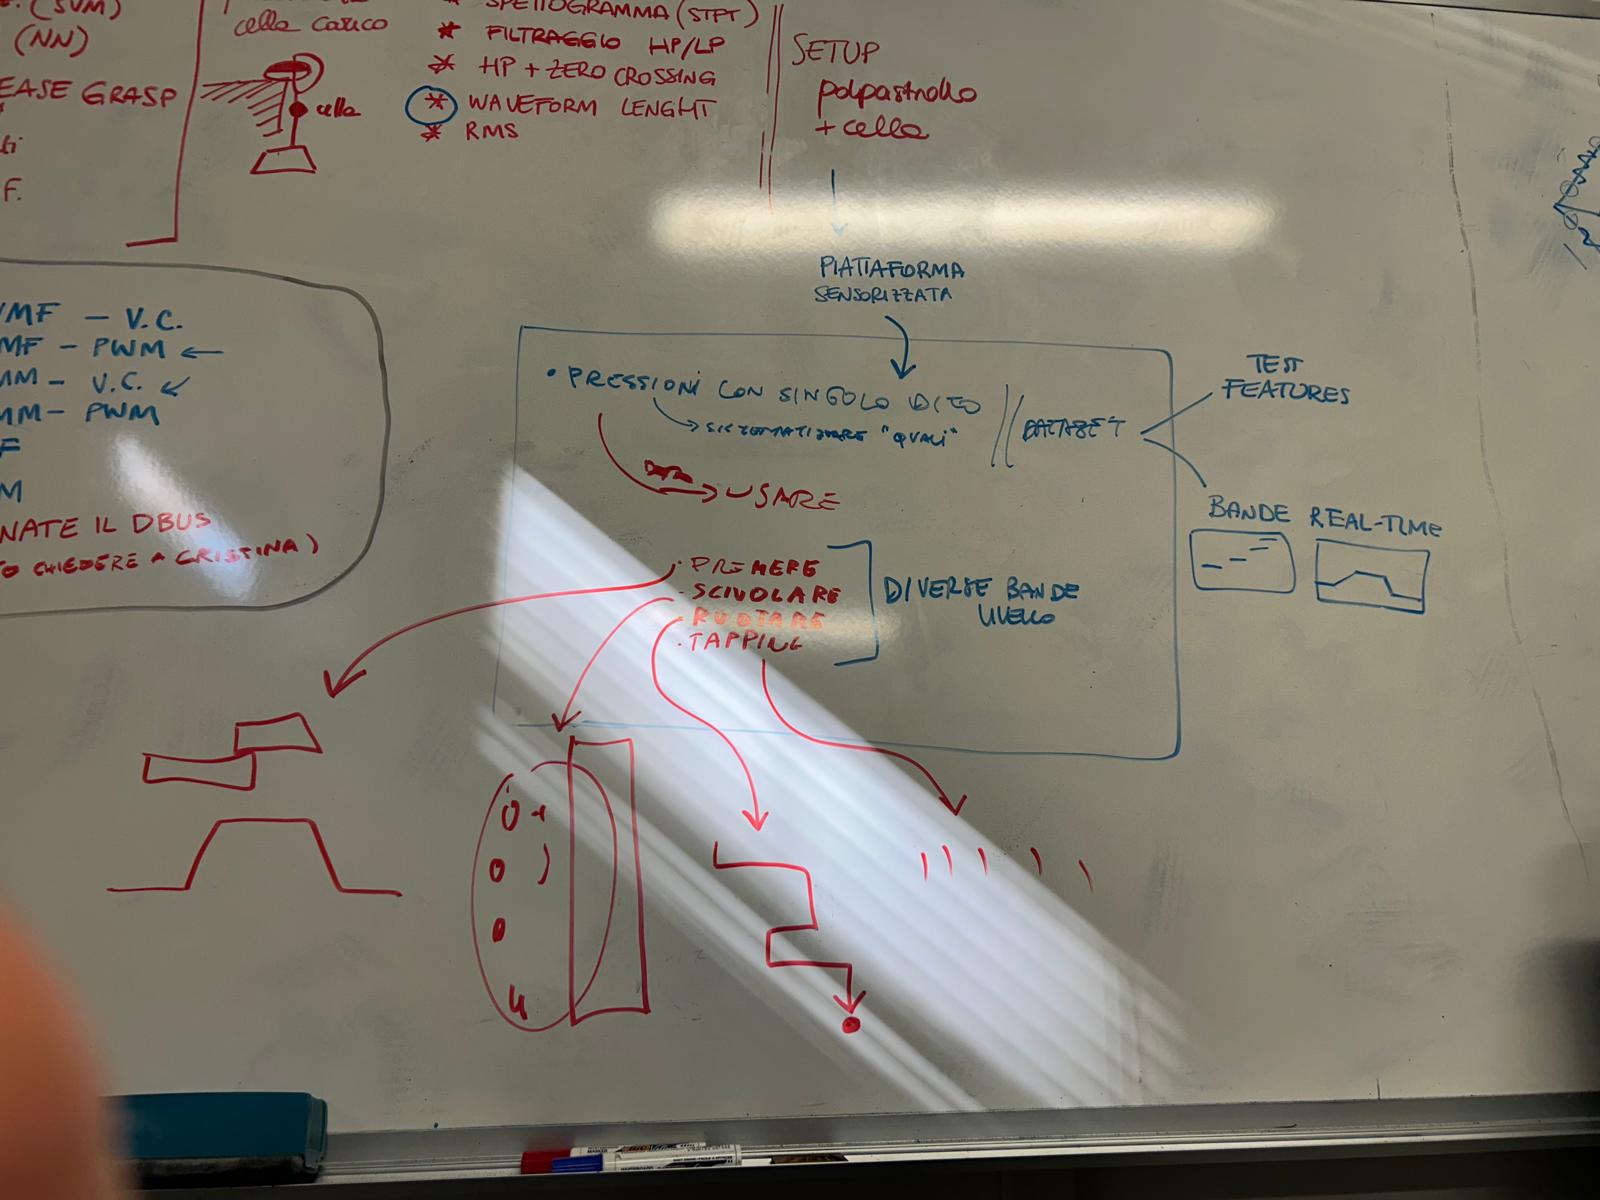 (SVM)
(NN)
EASE GRASP
F.
cella carico
cella
* SPETTOGRAMMA (STFT)
* FILTRAGGIO HP/LP
* HP + ZERO CROSSING
* WAVEFORM LENGHT
* RMS
SETUP
polpastrello
+ cella
PIATTAFORMA
SENSORIZZATA
MF - V.C.
MF - PWM ←
MM - V.C. ↙
MM - PWM
F
M
NATE IL DBUS
CHIEDERE A CRISTINA)
• PRESSIONI CON SINGOLO DITO
→ SISTEMATIZZARE "QUALI"
DATASET
TEST
FEATURES
BANDE REAL-TIME
USARE
· PREMERE
· SCIVOLARE
· RUOTARE
· TAPPING
DIVERSE BANDE
LIVELLO